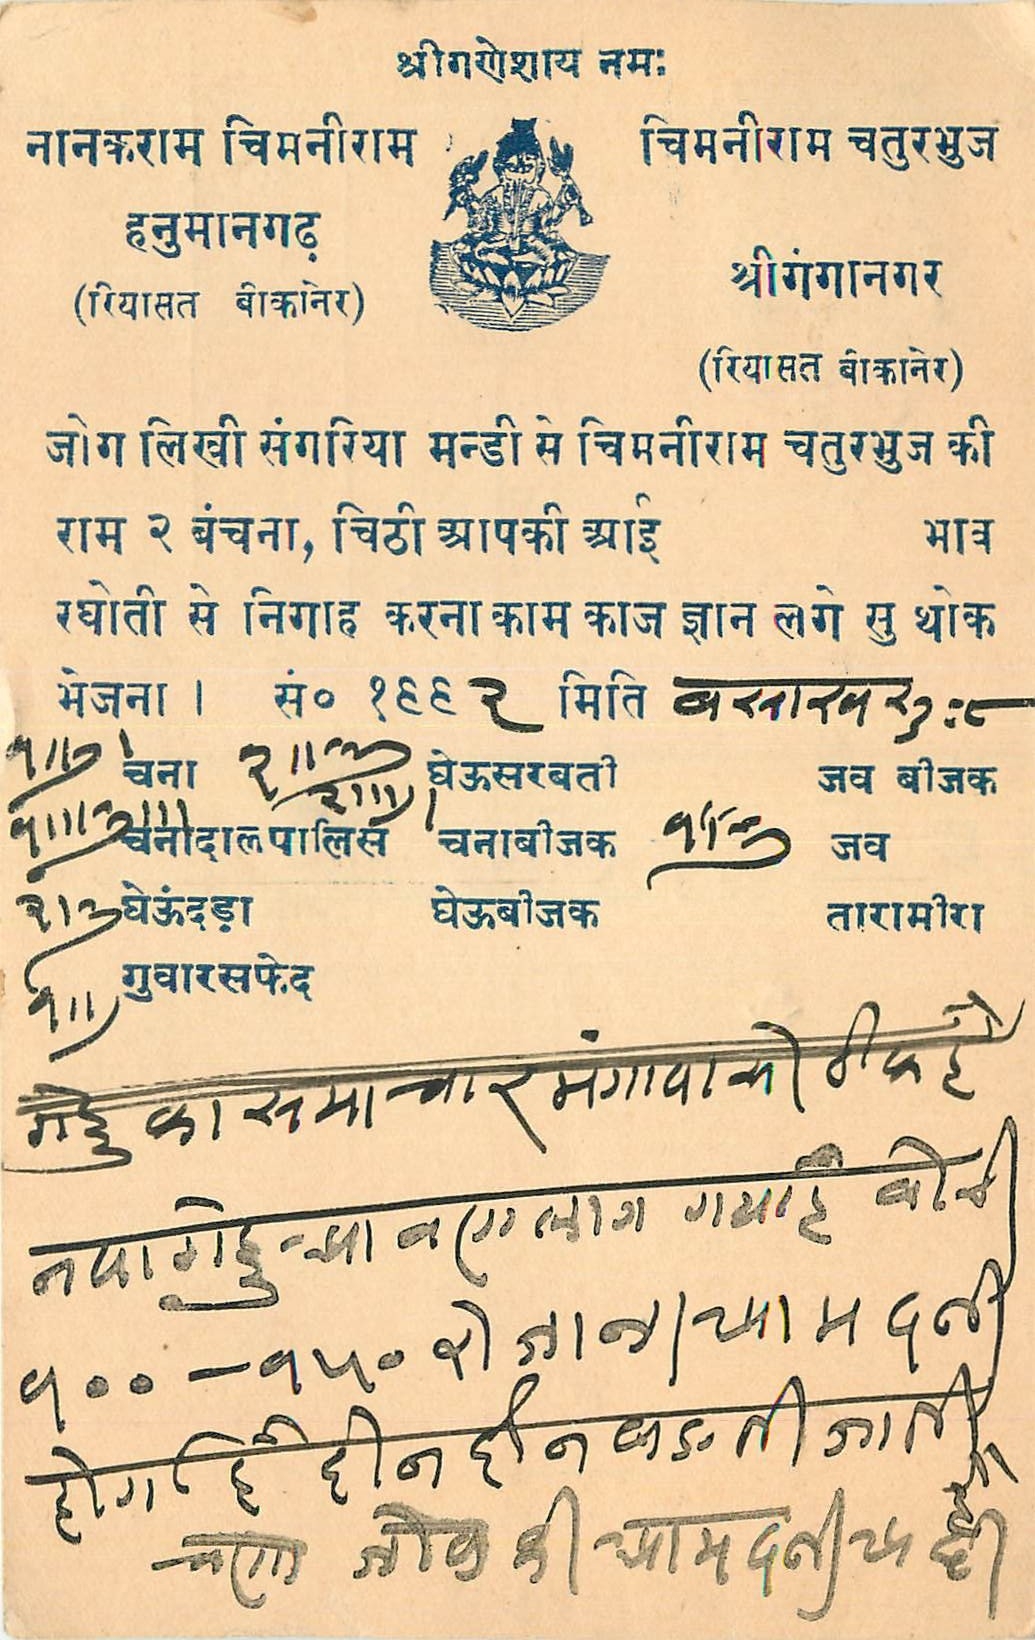 श्रीगणेशाय नमः
नानकराम चिमनीराम
हनुमानगढ़
(रियासत बीकानेर)
चिमनीराम चतुरभुज
श्रीगंगानगर
(रियासत बीकानेर)
जोग लिखी संगरिया मन्डी से चिमनीराम चतुरभुज की
राम २ बंचना, चिठी आपकी आई भाव
रघोती से निगाह करना काम काज ज्ञान लगे सु थोक
भेजना । सं० १९९२ मिति
चना घेऊसरबती जव बीजक
चनादालपालिस चनाबीजक जव
घेऊंदड़ा घेऊबीजक तारामीरा
गुवारसफेद
गेहु का समाचार मंगाया सो ठीक है
नया गेहु आवण लाग गया है बोरी
१००-१५० रोजाना आमदनी
होगई है दीन दीन बडती जाती है
चणा जौ की आमदनी